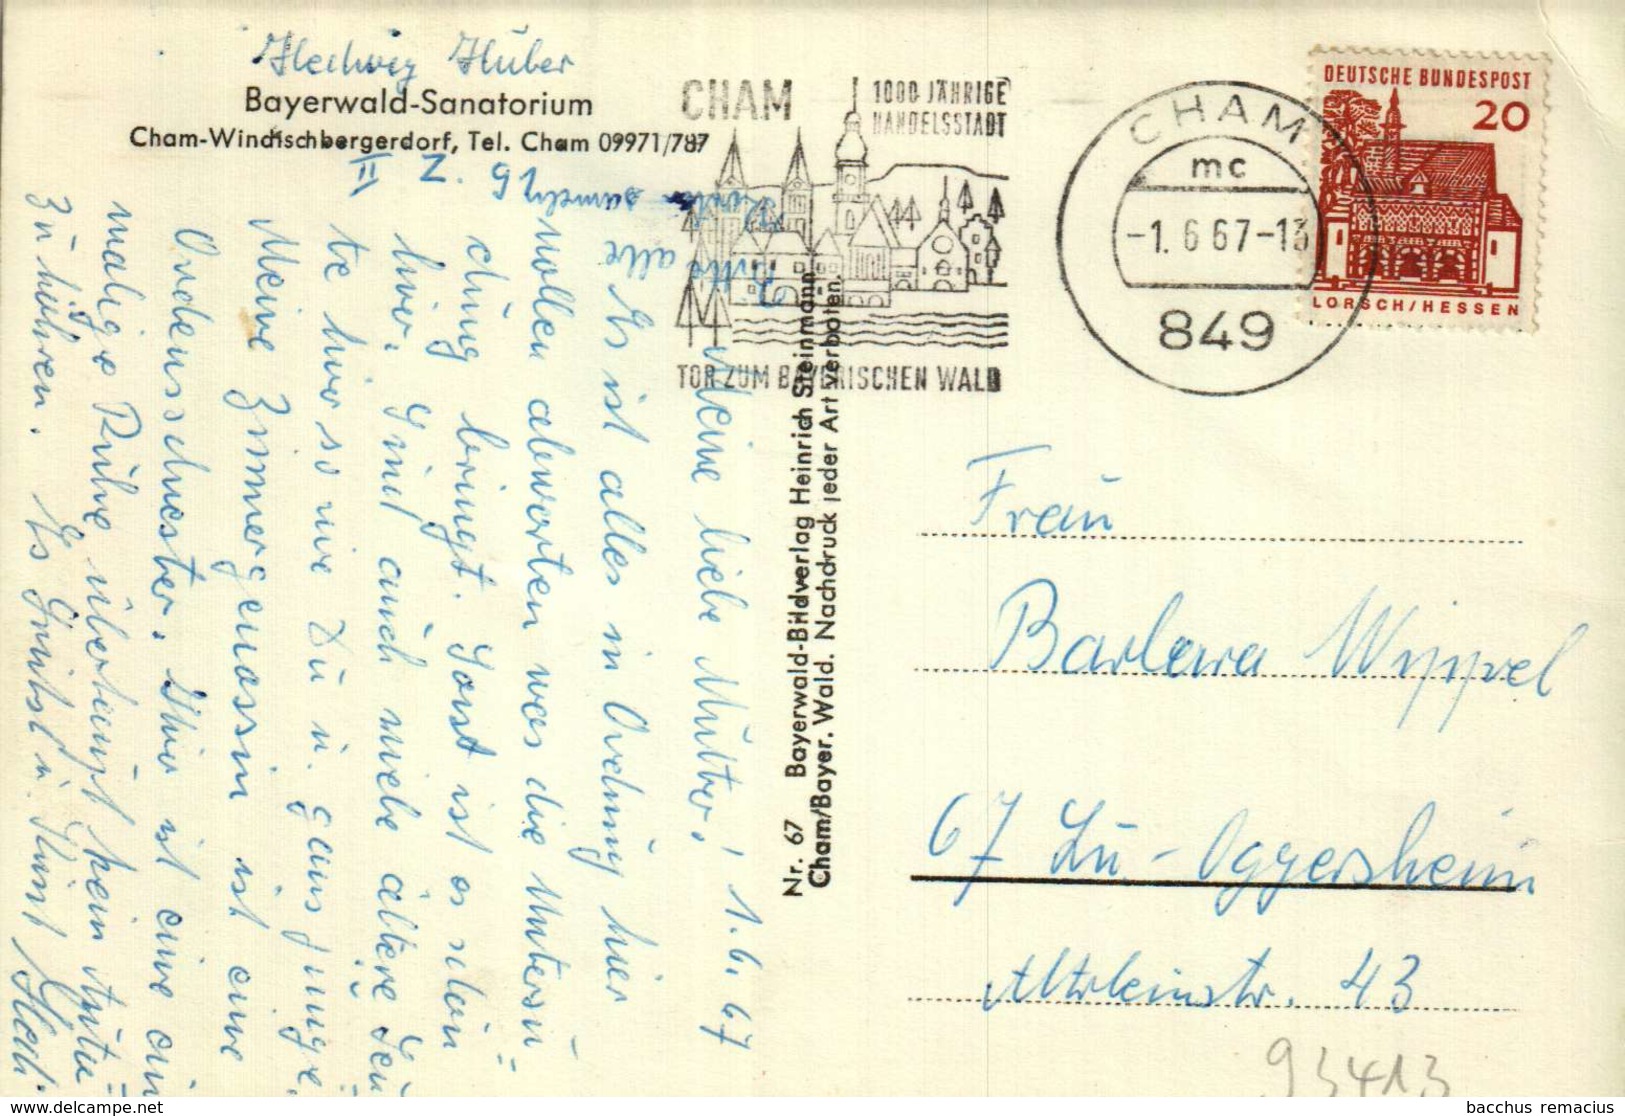 Hedwig Huber
Bayerwald-Sanatorium
Cham-Windischbergerdorf, Tel. Cham 09971/787
II Z. 91
CHAM
1000 JÄHRIGE
HANDELSSTADT
TOR ZUM BAYERISCHEN WALD
CHAM
mc
-1. 6 67-13
849
DEUTSCHE BUNDESPOST
20
LORSCH/HESSEN
Bitte
alle
sameln
1. 6. 67
Meine liebe Mutter,
Es ist alles in Ordnung hier
wollen abwarten was die Untersu-
chung bringt. Sonst ist es schön
hier. Sind auch viele ältere Leu-
te hier so wie Du u. ganz junge.
Meine Zimmergenossin ist eine
Ordensschwester. Hier ist eine ein-
malige Ruhe überhaupt kein Auto
zu hören. Es Grüßt u. Küsst Hedi.
Nr. 67 Bayerwald-Bildverlag Heinrich Steinmann
Cham/Bayer. Wald. Nachdruck jeder Art verboten.
Frau
Barbara Wippel
67 Lu-Oggersheim
43
93413
bacchus remacius